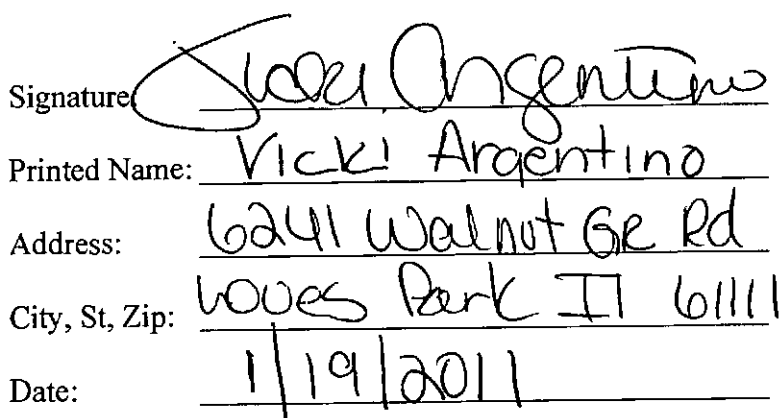 Signature: Vicki Argentino
Printed Name: Vicki Argentino
Address: 6241 Walnut Gr Rd
City, St, Zip: Loves Park Il 61111
Date: 1/19/2011